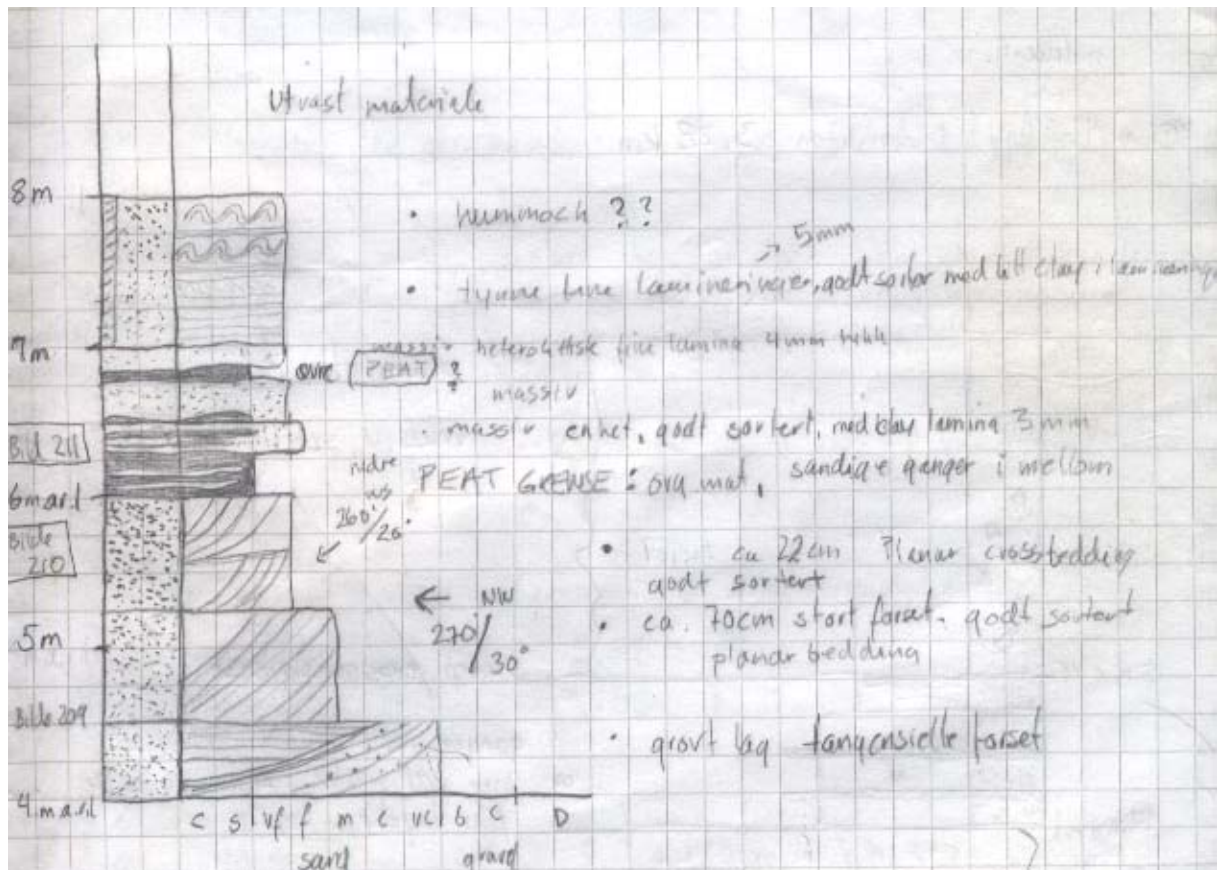 Utvast materiale
8m
• hummock ??
→ 5mm
• tynne fine lamineringer, godt sorter med litt clay i lamineringe
7m
massiv heterolittisk fine lamina 4mm tykk
øvre PEAT ?
?
massiv
• massiv enhet, godt sortert, med clay lamina 3mm
Bild 211
nedre
PEAT GRENSE : org mat, sandige ganger i mellom
6 m a r.l
260°/20°
Bilde
210
• ca 22cm Planar crossbedding
godt sortert
← NW
270/30°
• ca. 70cm stort forset. godt sortert
planar bedding
5m
Bilde 209
• grovt lag tangensielle forset
4 m a.r.l
c s vf f m c vc b c D
sand gravel